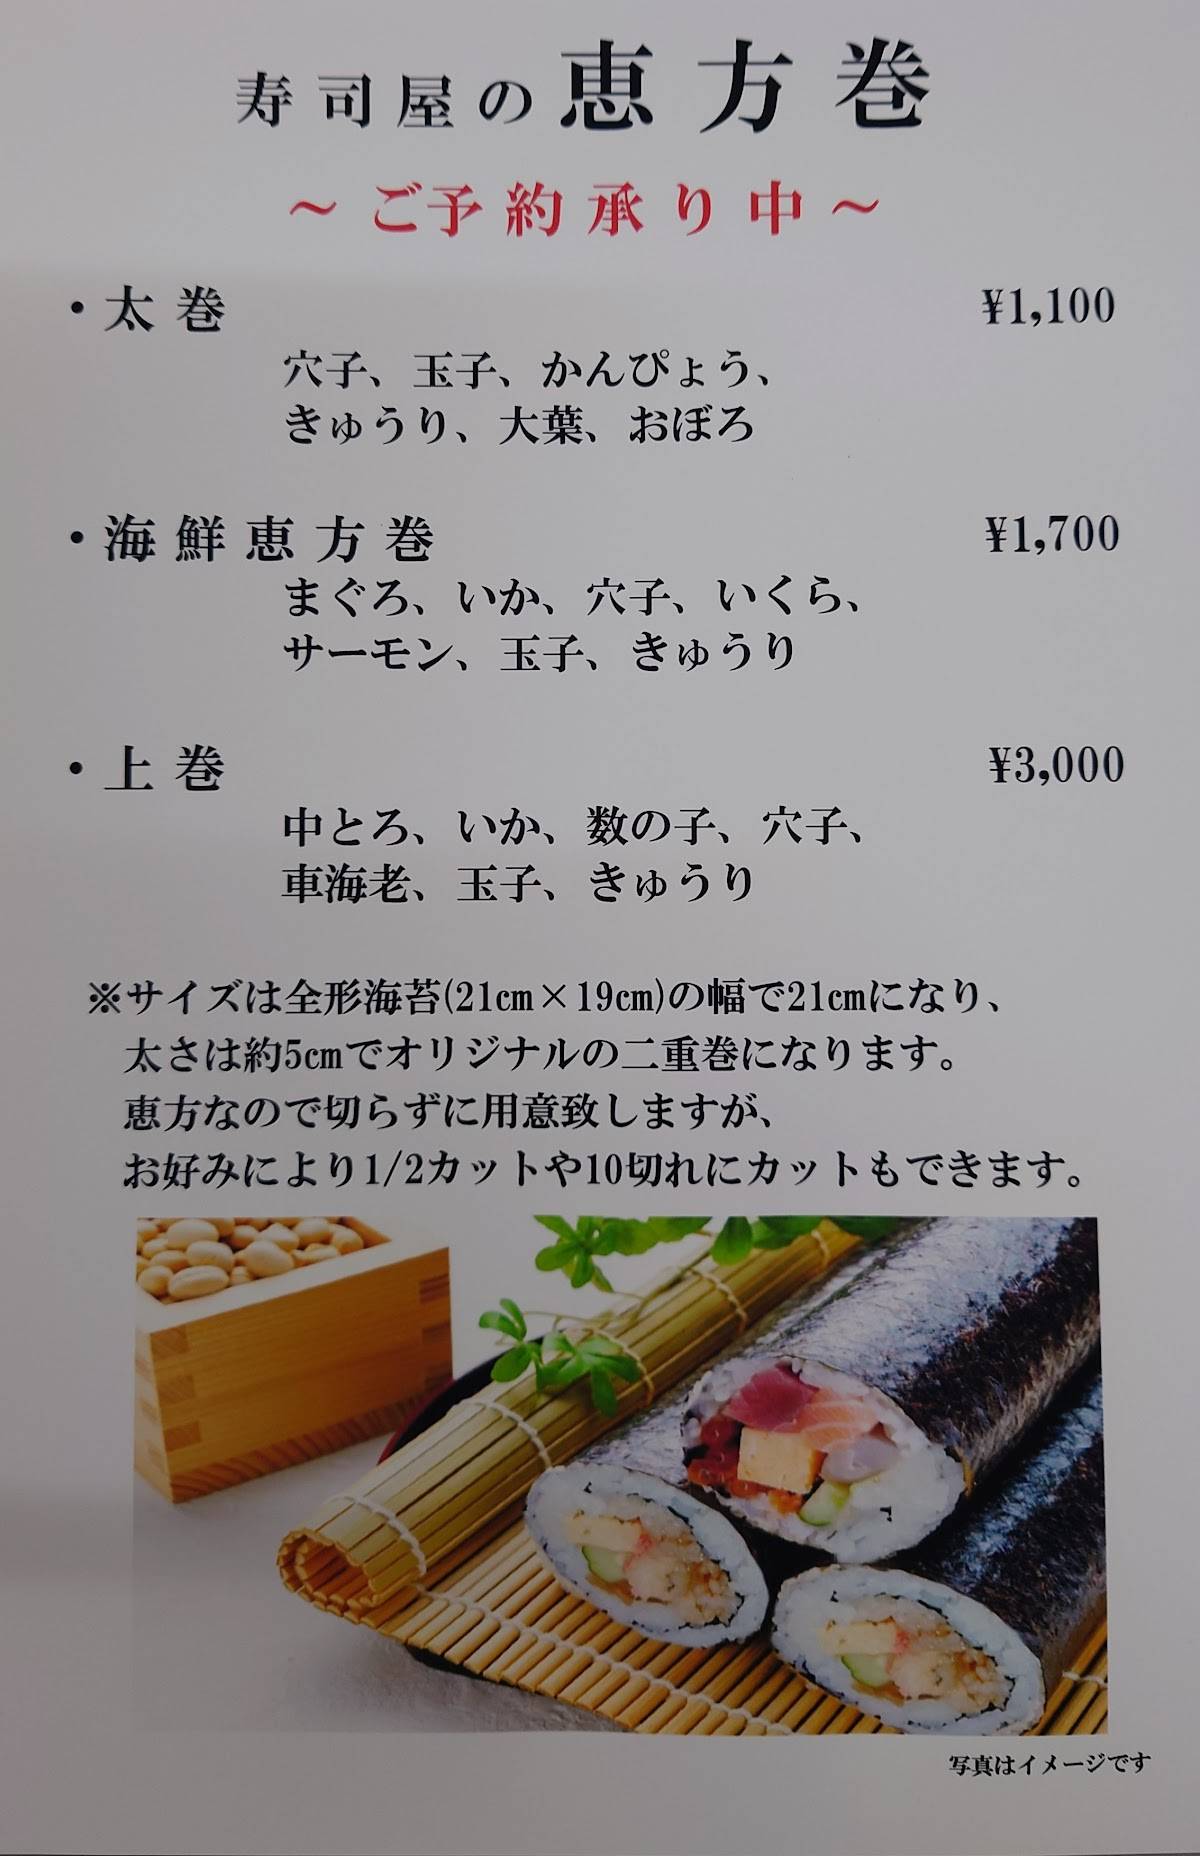 寿司屋の恵方巻
～ご予約承り中～
・太巻 ¥1,100
穴子、玉子、かんぴょう、
きゅうり、大葉、おぼろ
・海鮮恵方巻 ¥1,700
まぐろ、いか、穴子、いくら、
サーモン、玉子、きゅうり
・上巻 ¥3,000
中とろ、いか、数の子、穴子、
車海老、玉子、きゅうり
※サイズは全形海苔(21cm×19cm)の幅で21cmになり、
太さは約5cmでオリジナルの二重巻になります。
恵方なので切らずに用意致しますが、
お好みにより1/2カットや10切れにカットもできます。
写真はイメージです